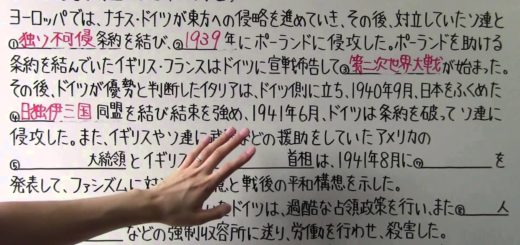 ヨーロッパでは、ナチス・ドイツが東方への侵略を進めていき、その後、対立していたソ連と
①独ソ不可侵条約を結び、②1939年にポーランドに侵攻した。ポーランドを助ける
条約を結んでいたイギリス・フランスはドイツに宣戦布告して③第二次世界大戦が始まった。
その後、ドイツが優勢と判断したイタリアは、ドイツ側に立ち、1940年9月、日本をふくめた
④日独伊三国同盟を結び結束を強め、1941年6月、ドイツは条約を破ってソ連に
侵攻した。また、イギリスやソ連に武などの援助をしていたアメリカの
⑤大統領とイギリス首相は、1941年8月に⑦を
発表して、ファシズムに対と戦後の平和構想を示した。
たドイツは、過酷な占領政策を行い、また⑧人
などの強制収容所に送り、労働を行わせ、殺害した。